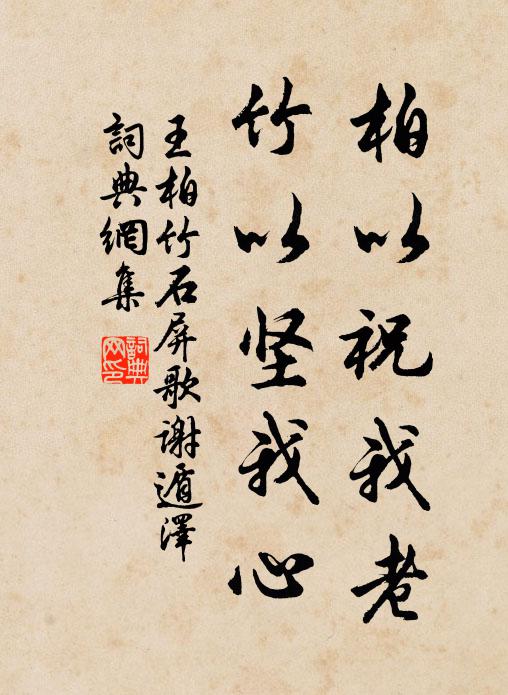 柏以祝我老
竹以坚我心
王柏竹石屏歌谢遁澤
詞典網集
詞典
网印